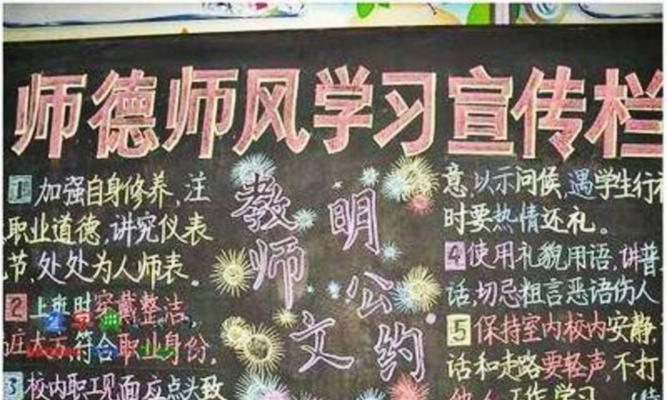 师德师风学习宣传栏
1 加强自身修养，注
职业道德，讲究仪表
节，处处为人师表。
2 上班时穿戴整洁，
符合职业身份。
3 校内职工见面应点头致
教师文
明公约
意，以示问候，遇学生行
时要热情还礼。
4 使用礼貌用语，讲普
话，切忌粗言恶语伤人
5 保持室内校内安静，
话和走路要轻声，不打
他人工作学习